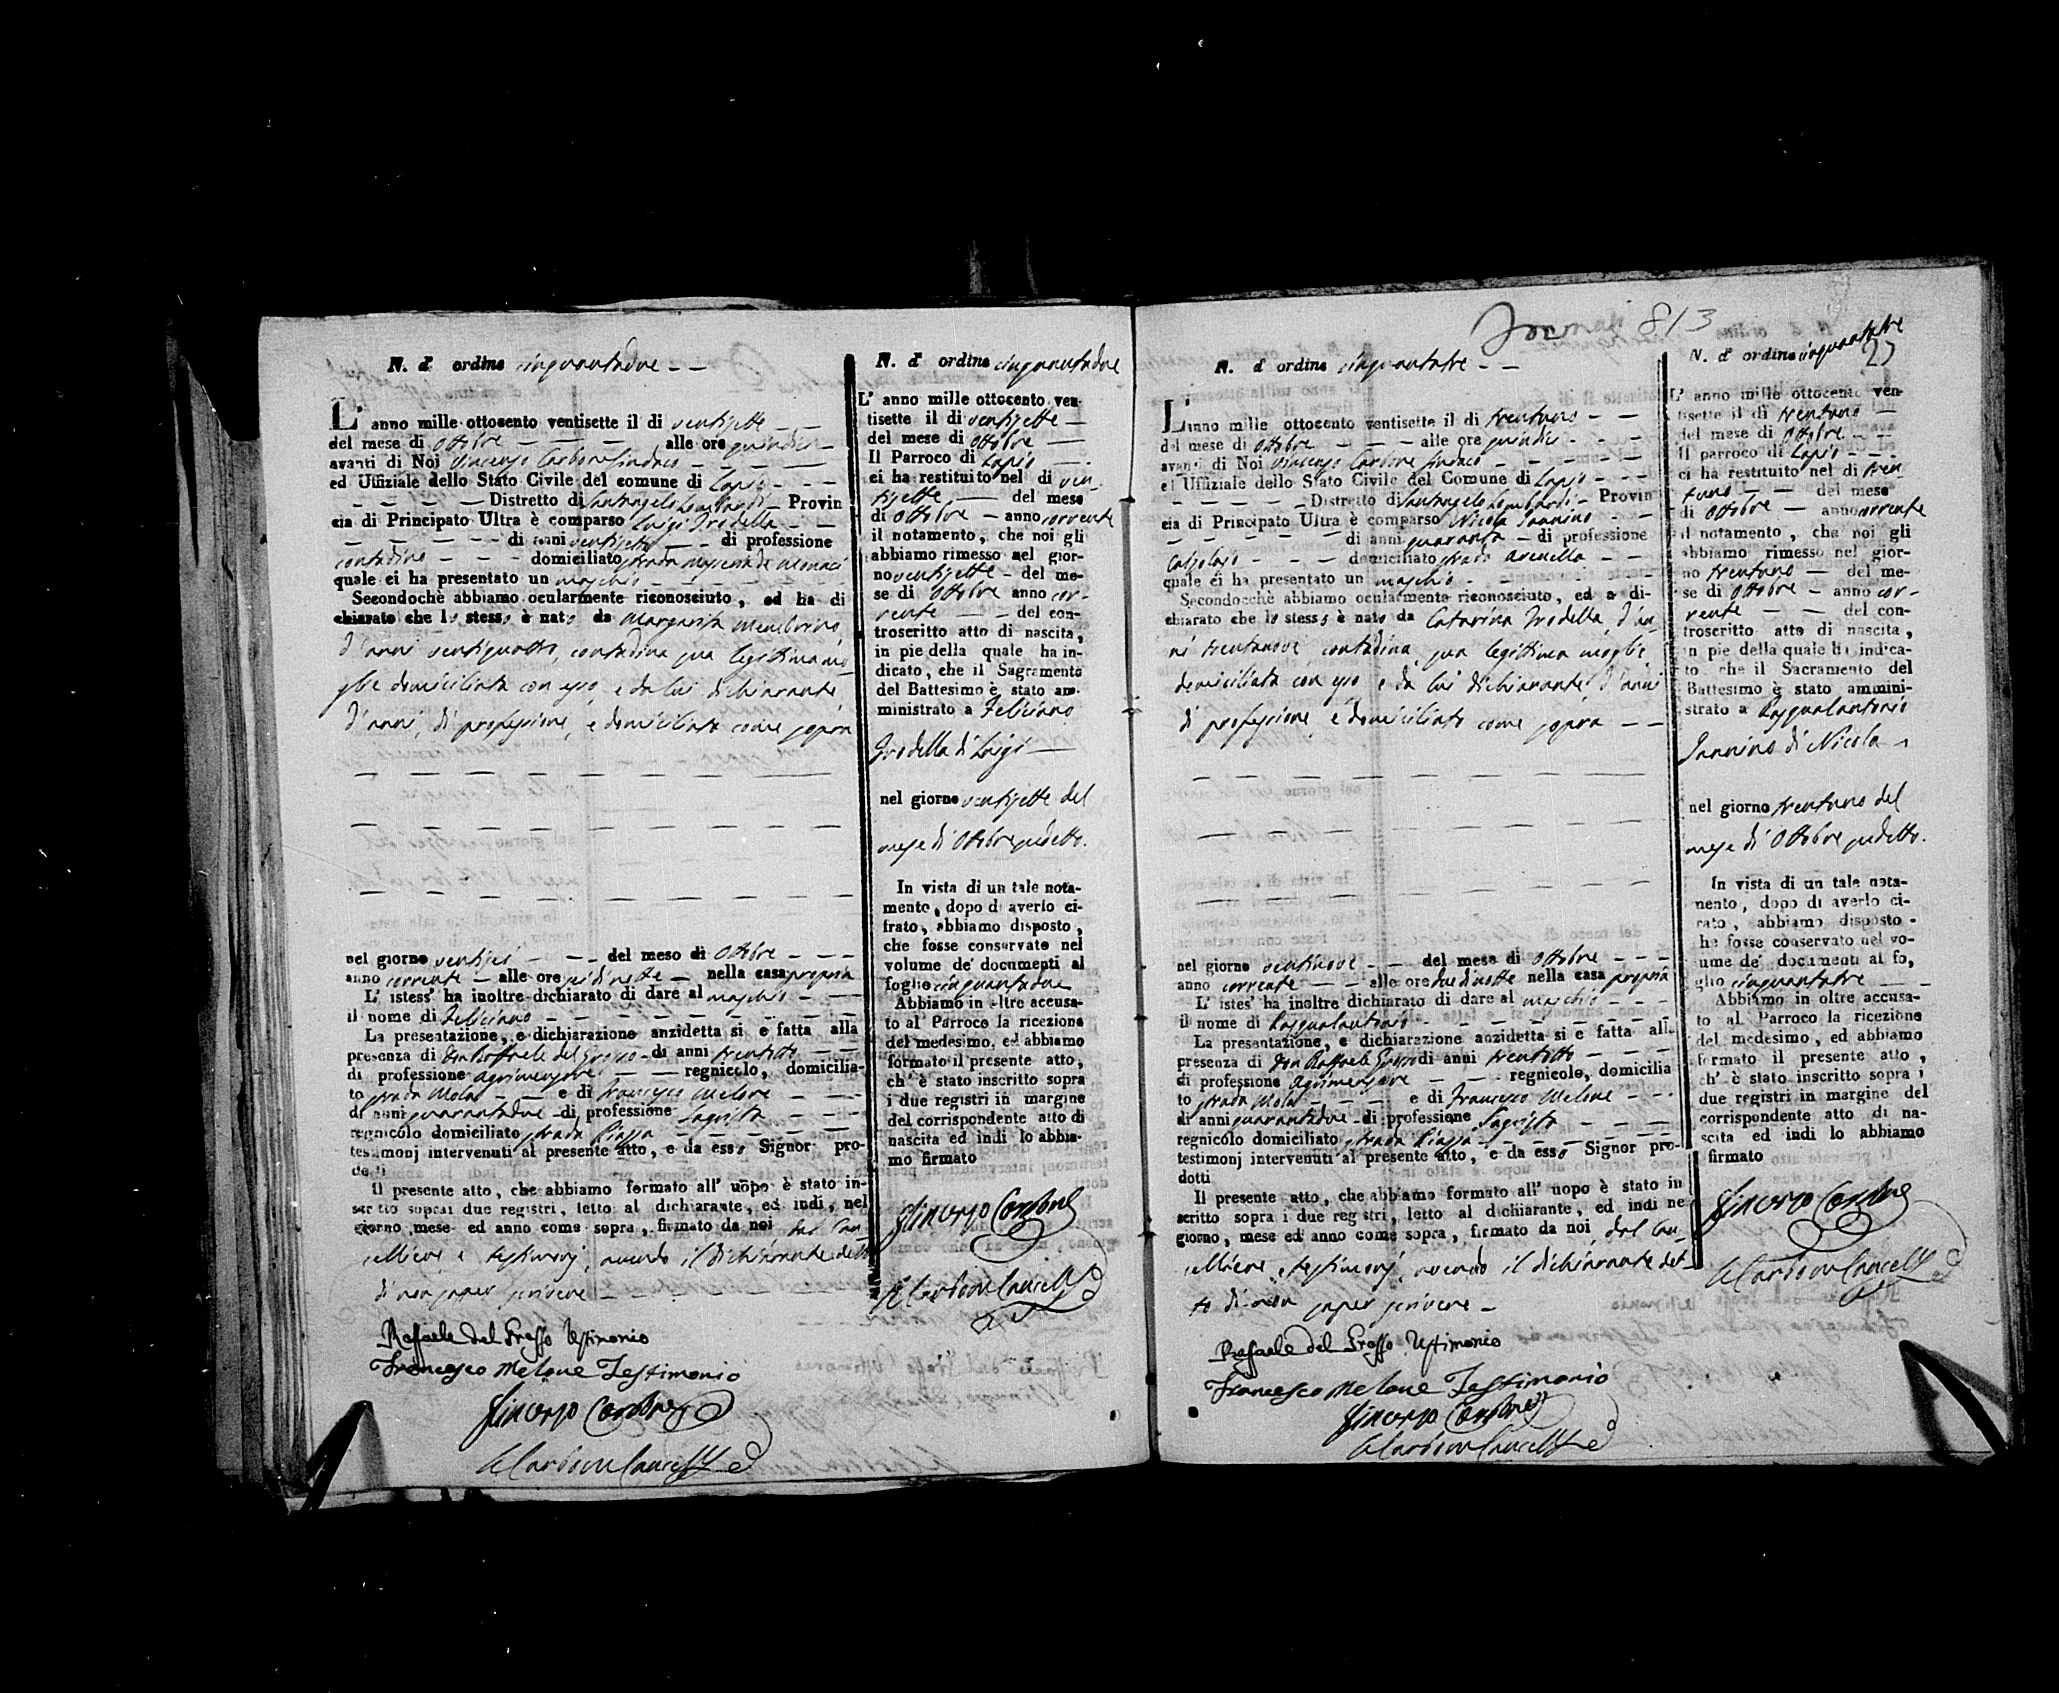 N. d' ordine cinquantadue
L' anno mille ottocento ventisette il di ventisette
del mese di Ottobre alle ore quindici
avanti di Noi Vincenzo Carbone Sindaco
ed Uffiziale dello Stato Civile del comune di Lapio
Distretto di Santangelo Lombardi Provin
cia di Principato Ultra è comparso Luigi Trodella
di anni ventisette di professione
contadino domiciliato strada
quale ci ha presentato un maschio
Secondochè abbiamo ocularmente riconosciuto, ed ha di
chiarato che lo stesso è nato da Margarita
d'anni ventiquattro, contadina sua legittima mo
glie domiciliata con esso, e da lui dichiarante
d'anni, di professione, e domiciliato come sopra
nel giorno del mese di Ottobre
anno corrente alle ore sei di notte nella casa propria
L' istess' ha inoltre dichiarato di dare al maschio
il nome di Feliciano
La presentazione, e dichiarazione anzidetta si e fatta alla
presenza di Don Raffaele del Grosso di anni trentotto
di professione agrimensore regnicolo, domicilia-
to strada Mola e di Francesco Melone
di anni quarantadue di professione Sagrista
regnicolo domiciliato strada Piazza
testimonj intervenuti al presente atto, e da esso Signor pro-
dotti
Il presente atto, che abbiamo formato all' uopo è stato in-
scritto sopra i due registri, letto al dichiarante, ed indi, nel
giorno mese ed anno come sopra, firmato da noi, dal can
celliere e testimonj, avendo il dichiarante detto
di non saper scrivere
Raffaele del Grosso Testimonio
Francesco Melone Testimonio
Vincenzo Carbone
Carbone Cancell
N. d' ordine cinquantadue
L' anno mille ottocento ven-
tisette il di ventisette
del mese di Ottobre
Il Parroco di Lapio
ci ha restituito nel di ven
tisette del mese
di Ottobre anno corrente
il notamento, che noi gli
abbiamo rimesso nel gior-
no ventisette del me-
se di Ottobre anno cor-
rente del con-
troscritto atto di nascita,
in pie della quale ha in-
dicato, che il Sagramento
del Battesimo è stato am-
ministrato a Feliciano
Trodella di Luigi
nel giorno ventisette del
mese di Ottobre sudetto.
In vista di un tale nota-
mento, dopo di averlo ci-
frato, abbiamo disposto,
che fosse conservato nel
volume de' documenti al
foglio cinquantadue
Abbiamo in oltre accusa-
to al Parroco la ricezione
del medesimo, ed abbiamo
formato il presente atto,
ch' è stato inscritto sopra
i due registri in margine
del corrispondente atto di
nascita ed indi lo abbia-
mo firmato
Vincenzo Carbone
Carbone Cancell
813
N. d' ordine cinquantatre
L' anno mille ottocento ventisette il di trentuno
del mese di Ottobre alle ore quindici
avanti di Noi Vincenzo Carbone Sindaco
ed Uffiziale dello Stato Civile del Comune di Lapio
Distretto di Santangelo Lombardi Provin
cia di Principato Ultra è comparso Nicola Iannino
di anni quaranta di professione
Calzolajo domiciliato strada Arenella
quale ci ha presentato un maschio
Secondocchè abbiamo ocularmente riconosciuto, ed a di-
chiarato che lo stesso è nato da Catarina Trodella, d'an
ni trentanove contadina, sua legittima moglie,
domiciliata con esso e da lui dichiarante, d'anni
di professione, e domiciliato come sopra
nel giorno ventinove del mese di Ottobre
anno corrente alle ore due di notte nella casa propria
L' istes' ha inoltre dichiarato di dare al maschio
il nome di Pasqualantonio
La presentazione, e dichiarazione anzidetta si e fatta alla
presenza di Don Raffaele Grosso di anni trentotto
di professione agrimensore regnicolo, domicilia
to strada Mola e di Francesco Melone
di anni quarantadue di professione Sagrista
regnicolo domiciliato strada Piazza
testimonj intervenuti al presente atto, e da esso Signor pro-
dotti
Il presente atto, che abbiamo formato all' uopo è stato in
scritto sopra i due registri, letto al dichiarante, ed indi ne
giorno, mese ed anno come sopra, firmato da noi, dal can-
celliere, e testimonj, avendo il dichiarante det-
to di non saper scrivere
Raffaele del Grosso Testimonio
Francesco Melone Testimonio
Vincenzo Carbone
Carbone Cancell
N. d' ordine cinquantatre
27
L' anno mille ottocento ven-
tisette il di trentuno
del mese di Ottobre
Il parroco di Lapio
ci ha restituito nel di tren
tuno del mese
di Ottobre anno corrente
il notamento, che noi gli
abbiamo rimesso nel gior-
no trentuno del me-
se di Ottobre anno cor-
rente del con-
troscritto atto di nascita,
in pie della quale ha indica-
to che il Sacramento del
Battesimo è stato ammini-
strato a Pasqualantonio
Iannino di Nicola
nel giorno trentuno del
mese di Ottobre sudetto.
In vista di un tale nota-
mento, dopo di averlo ci-
frato, abbiamo disposto
che fosse conservato nel vo-
lume de' documenti al fo,
glio cinquantatre
Abbiamo in oltre accusa-
to al Parroco la ricezione
del medesimo, ed abbiamo
formato il presente atto,
ch' è stato inscritto sopra i
due registri in margine del
corrispondente atto di na-
scita ed indi lo abbiamo
firmato
Vincenzo Carbone
Carbone Cancell